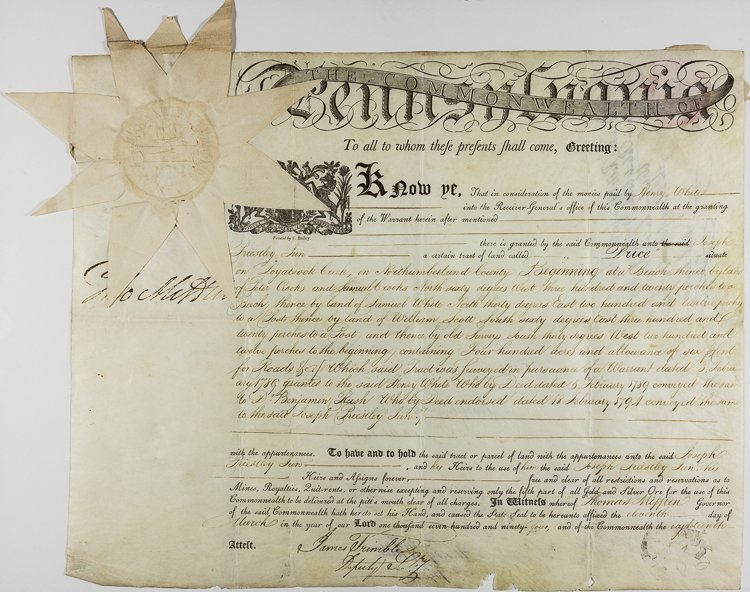 THE COMMONWEALTH OF
Pennsylvania
To all to whom these presents shall come, Greeting:
Know ye, That in consideration of the monies paid by Henry White
into the Receiver-General's office of this Commonwealth at the granting
of the Warrant herein after mentioned
Printed by F. Bailey.
there is granted by the said Commonwealth unto the said Joseph
Priestley Jun a certain tract of land called Price situate
on Loyalsock Creek, in Northumberland County Beginning at a Beach thence by land
of Peter Cooks and Samuel Cooks North sixty degrees West three hundred and twenty perches to a
Beach, thence by land of Samuel White North thirty degrees East two hundred and twelve perches
to a Post thence by land of William Scott South sixty degrees East three hundred and
twenty perches to a Post, and thence by old Surveys South thirty degrees West two hundred and
twelve perches to the beginning, containing Four hundred Acres and allowance of six per cent
for Roads &c. Which said Tract was surveyed in pursuance of a Warrant dated 3 Febru
ary 1786 granted to the said Henry White Who by Deed dated 5 February 1789 conveyed the same
to Dr Benjamin Rush Who by Deed endorsed dated 18 February 1794 conveyed the same
to the said Joseph Priestley Jun
with the appurtenances. To have and to hold the said tract or parcel of land with the appurtenances unto the said Joseph
Priestley Jun and his Heirs to the use of him the said Joseph Priestley Jun his
Heirs and Assigns forever, free and clear of all restrictions and reservations as to
Mines, Royalties, Quit-rents, or otherwise excepting and reserving only the fifth part of all Gold and Silver Ore for the use of this
Commonwealth to be delivered at the pit's mouth clear of all charges. In Witness whereof Thomas Mifflin Governor
of the said Commonwealth hath hereto set his Hand, and caused the State Seal to be hereunto affixed the eleventh day of
March in the year of our Lord one thousand seven hundred and ninety-four, and of the Commonwealth the eighteenth
Attest. James Trimble
Deputy Secy